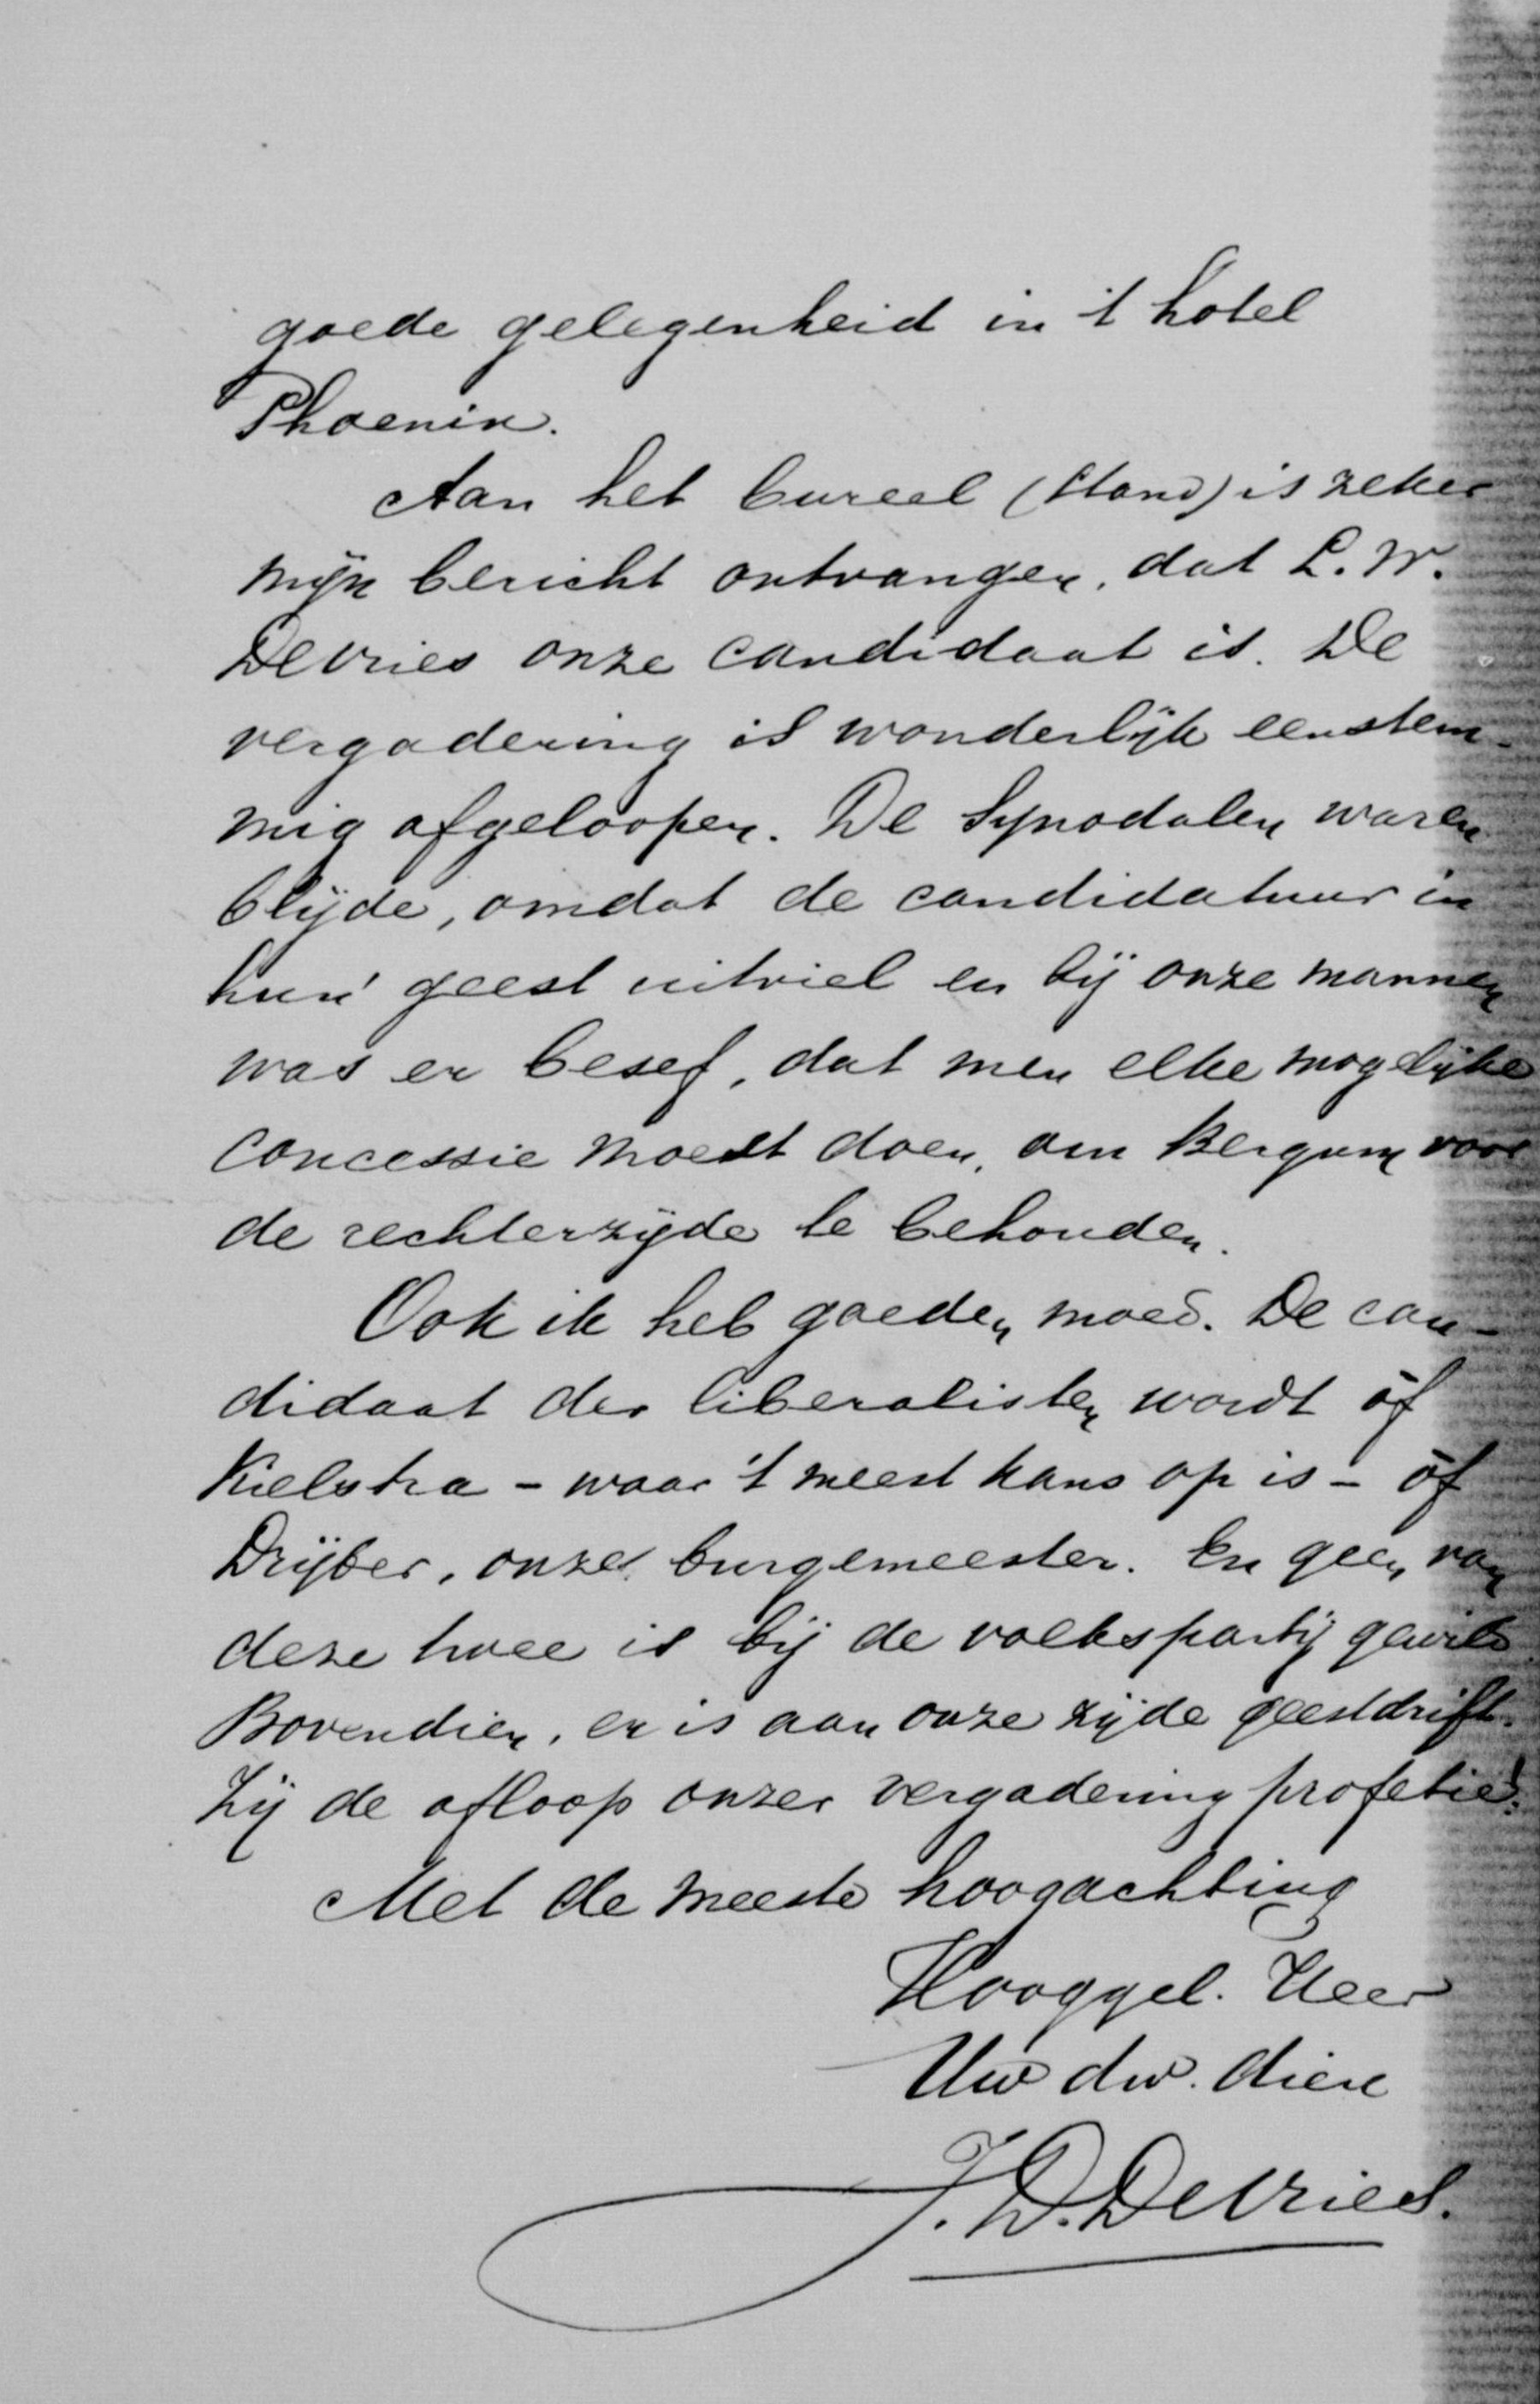 goede gelegenheid in 't hotel
Phoenix.
Aan het bureel (Stand) is zeker
mijn bericht ontvangen, dat L. W.
De Vries onze candidaat is. De
vergadering is wonderlijk eenstem-
mig afgeloopen. De Synodalen waren
blijde, omdat de candidatuur in
hun geest uitviel en bij onze mannen
was er besef, dat men elke mogelijke
concessie moest doen, om Bergum voor
de rechterzijde te behouden.
Ook ik heb goeden moed. De can-
didaat der liberalisten wordt òf
Kielstra - waar 't meest kans op is - òf
Drijber, onze burgemeester. En geen van
deze twee is bij de volkspartij gewild
Bovendien, er is aan onze zijde geestdrift.
Zij de afloop onzer vergadering profetie!
Met de meeste hoogachting
Hooggel. Heer
Uw dw. dien
J. D. De Vries.